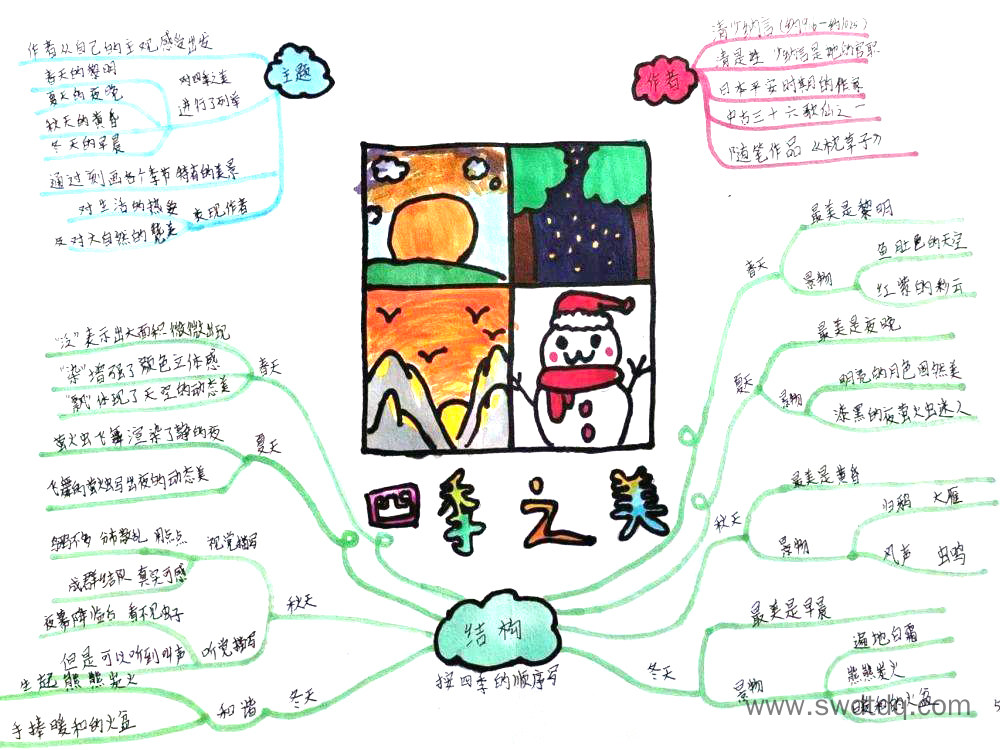 主题
作者从自己的主观感受出发
春天的黎明
夏天的夜晚
秋天的黄昏
冬天的早晨
对四季之美
进行了列举
通过刻画各个季节特有的美景
对生活的热爱
及对大自然的赞美
表现作者
作者
清少纳言
清是姓 少纳言是她的官职
日本平安时期的作家
中古三十六歌仙之一
随笔作品《枕草子》
四季之美
结构
按四季的顺序写
春天
最美是黎明
景物
鱼肚色的天空
红紫的彩云
夏天
最美是夜晚
景物
明亮的月色固然美
漆黑的夜萤火虫迷人
秋天
最美是黄昏
景物
归鸦 大雁
风声 虫鸣
冬天
最美是早晨
景物
遍地白霜
熊熊炭火
的火盆
春天
"泛"表示出大面积微微出现
"染"增强了颜色立体感
"飘"体现了天空的动态美
夏天
萤火虫飞舞渲染了静的夜
飞舞的萤火虫写出夜的动态美
秋天
视觉描写
成群结队 真实可感
听觉描写
夜幕降临后 看不见虫子
但是可以听到叫声
冬天
和谐
生起熊熊炭火
手捧暖和的火盆
5